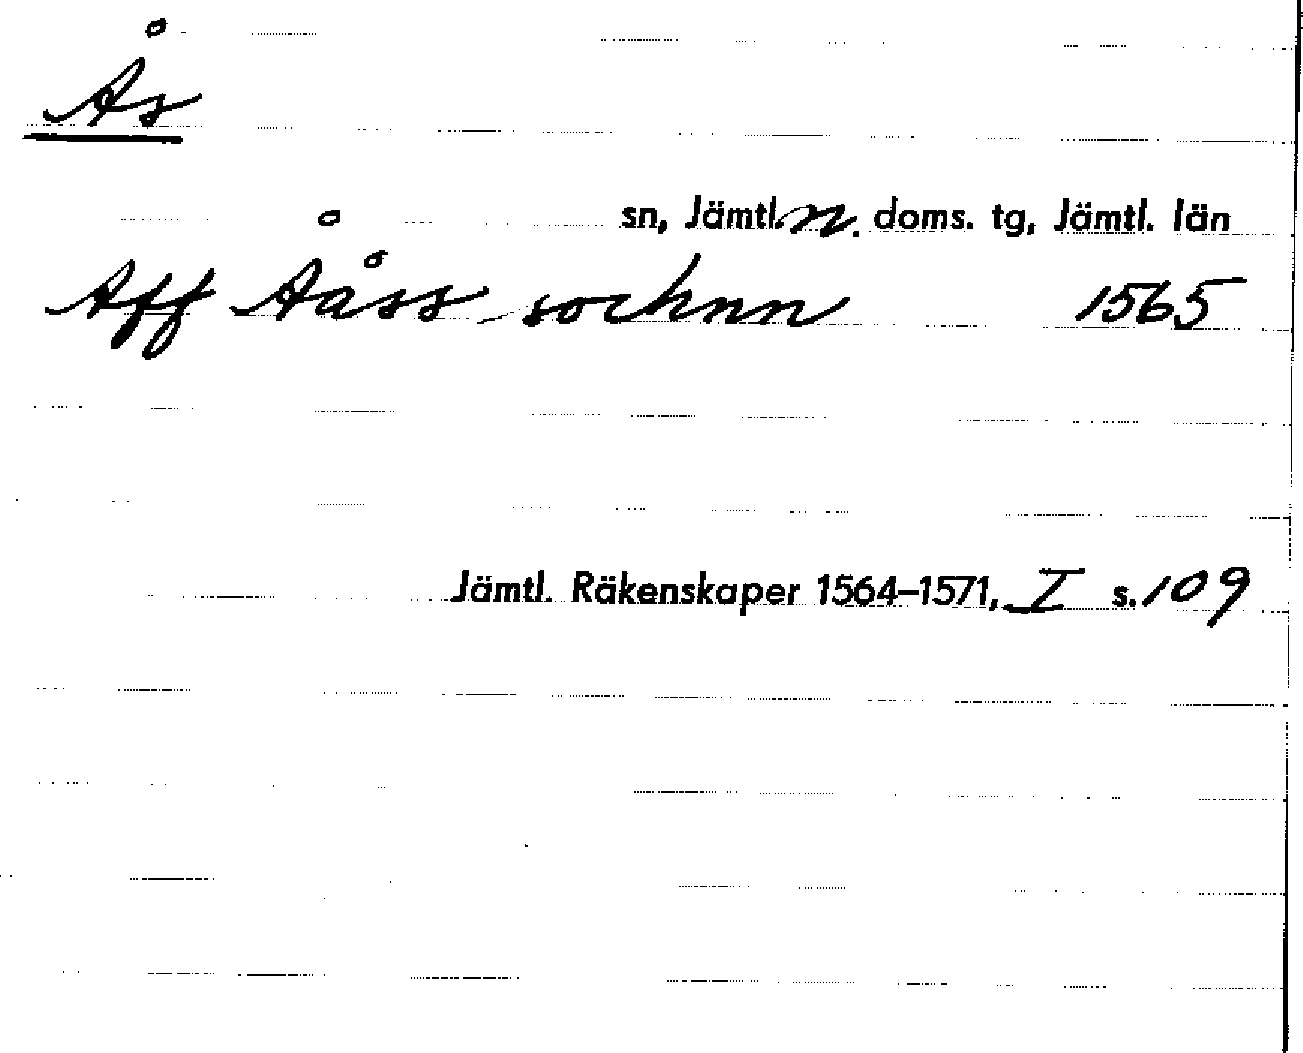 Ås
sn, Jämtl. n. doms. tg, Jämtl. län
Aff Ååss sochnn 1565
Jämtl. Räkenskaper 1564–1571, I s. 109